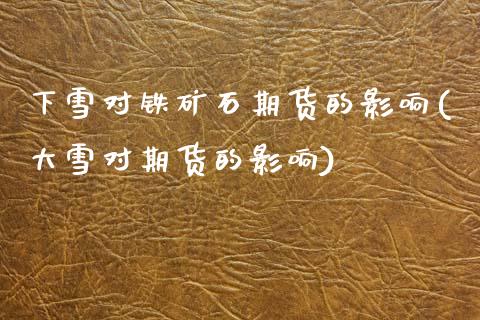 下雪对铁矿石期货的影响(
大雪对期货的影响)